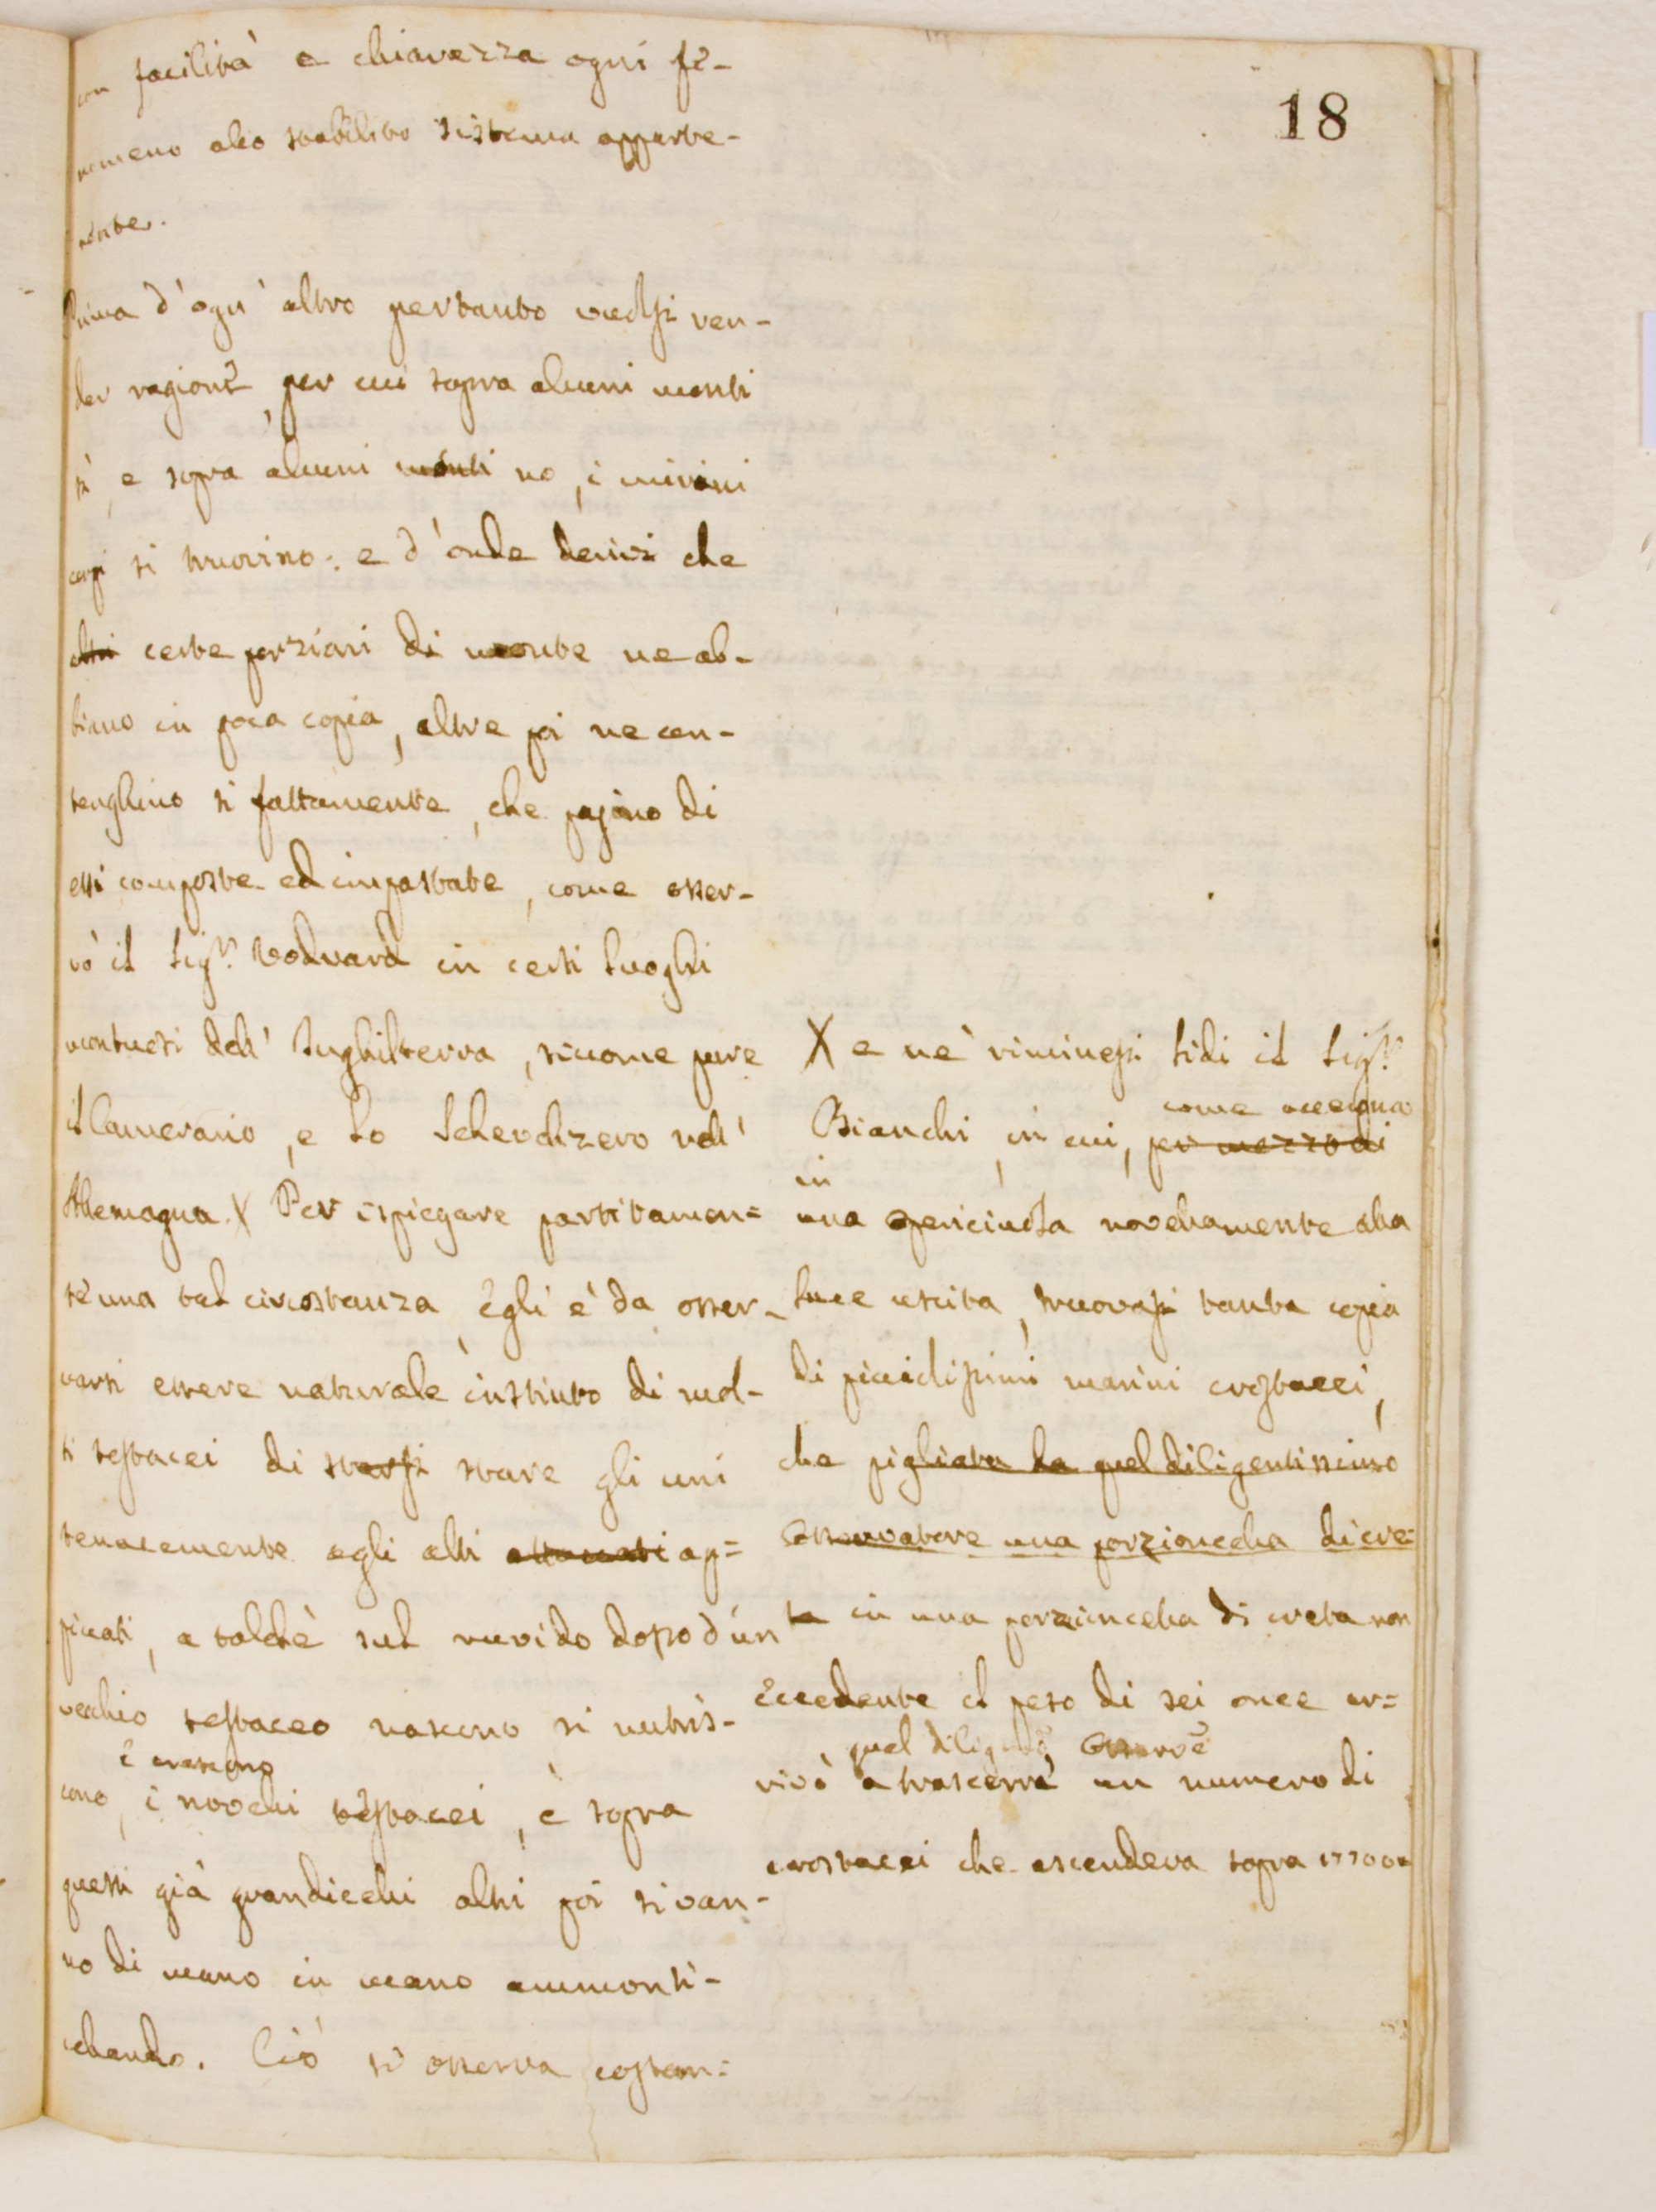 18
con facilità e chiarezza ogni fe-
nomeno allo stabilito sistema apparte-
nente.
Prima d'ogn'altro pertanto vedssi ren-
der ragione per cui sopra alcuni monti
sì, e sopra alcuni monti no, i marini
corpi si truovino: e d'onde derivi che
altri certe porzioni di monte ne ab-
bino in poca copia, altre poi ne con-
tenghino sì fattamente, che pajino di
essi composte ed impastate, come osser-
vò il Sigr. Vodvard in certi luoghi
montuosi dell'Inghilterra, siccome pure
il Camerario, e lo Scheuchzero nell'
Allemagna. X Per ispiegare partitamen=
te una tal circostanza, egli è da osser-
varsi essere naturale instinto di mol-
ti testacei di starsi stare gli uni
tenacemente agli altri attaccati ap=
piccati, a talchè sul ruvido dosso d'un
vecchio testaceo nascono si nutris-
e crescono
cono, i novelli testacei, e sopra
questi già grandicelli altri poi si van-
no di mano in mano ammonti-
chiando. Ciò si osserva costan=
X e ne' riminessi lidi il Sigr.
come accenna
Bianchi, in cui, per mezzo di
in
una opericciuola novellamente alla
luce uscita, truovasi tanta copia
di picciolissimi marini crostacei,
che pigliata da quel diligentissimo
Osservatore una porzioncella di cre=
ta in una porzioncella di creta non
eccedente il peso di sei once ar=
quel Osservre
rivò a trascerre un numero di
crostacei che ascendeva sopra